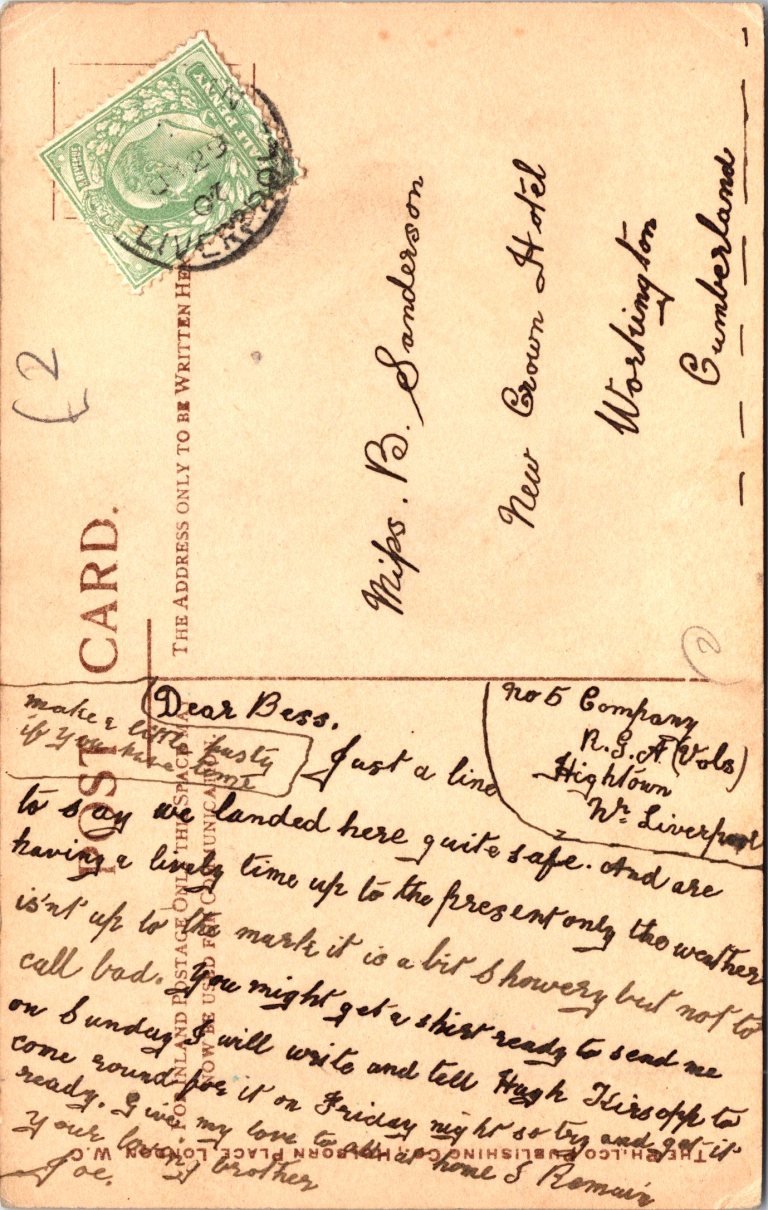 POST CARD.
THE ADDRESS ONLY TO BE WRITTEN HERE
FOR INLAND POSTAGE ONLY THIS SPACE MAY
NOW BE USED FOR COMMUNICATION
HALF PENNY
LIVERPOOL
JY 23
07
£2
2
Miss. B. Sanderson
New Crown Hotel
Workington
Cumberland
No 5 Company
R.G.A (Vols)
Hightown
Nr. Liverpool
Dear Bess.
Just a line
to say we landed here quite safe. And are
having a lively time up to the present only the weather
isn't up to the mark it is a bit showery but not to
call bad. You might get a shirt ready to send me
on Sunday I will write and tell Hugh Kirsopp to
come round for it on Friday night so try and get it
ready. Give my love to all at home I Remain
Your loving brother
Joe.
make a little pasty
if you have time
THE PHILCO PUBLISHING CO., HOLBORN PLACE, LONDON W.C.